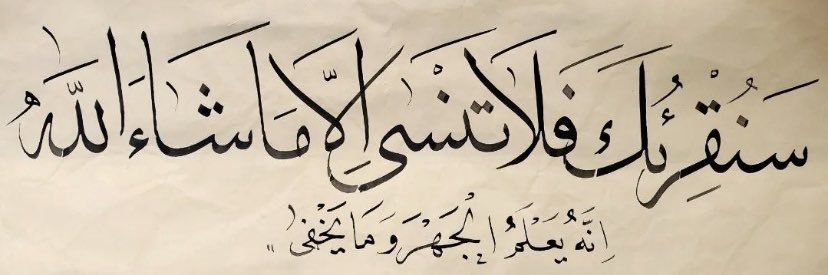 سَنُقْرِئُكَ فَلَا تَنْسَى إِلَّا مَا شَاءَ اللَّهُ
إِنَّهُ يَعْلَمُ الْجَهْرَ وَمَا يَخْفَى